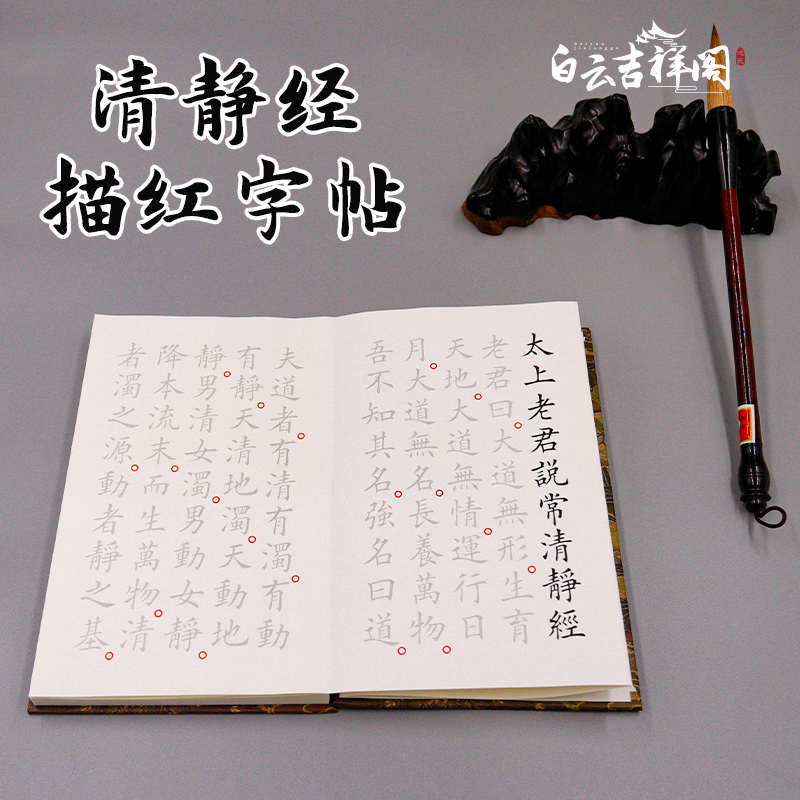 清静经
描红字帖
白云吉祥阁
太上老君説常清靜經
老君曰大道無形生育
天地大道無情運行日
月大道無名長養萬物
吾不知其名強名曰道
夫道者有清有濁有動
有靜天清地濁天動地
靜男清女濁男動女靜
降本流末而生萬物清
者濁之源動者靜之基